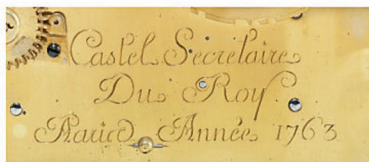 Castel Secretaire
Du Roy
Paris Année 1763